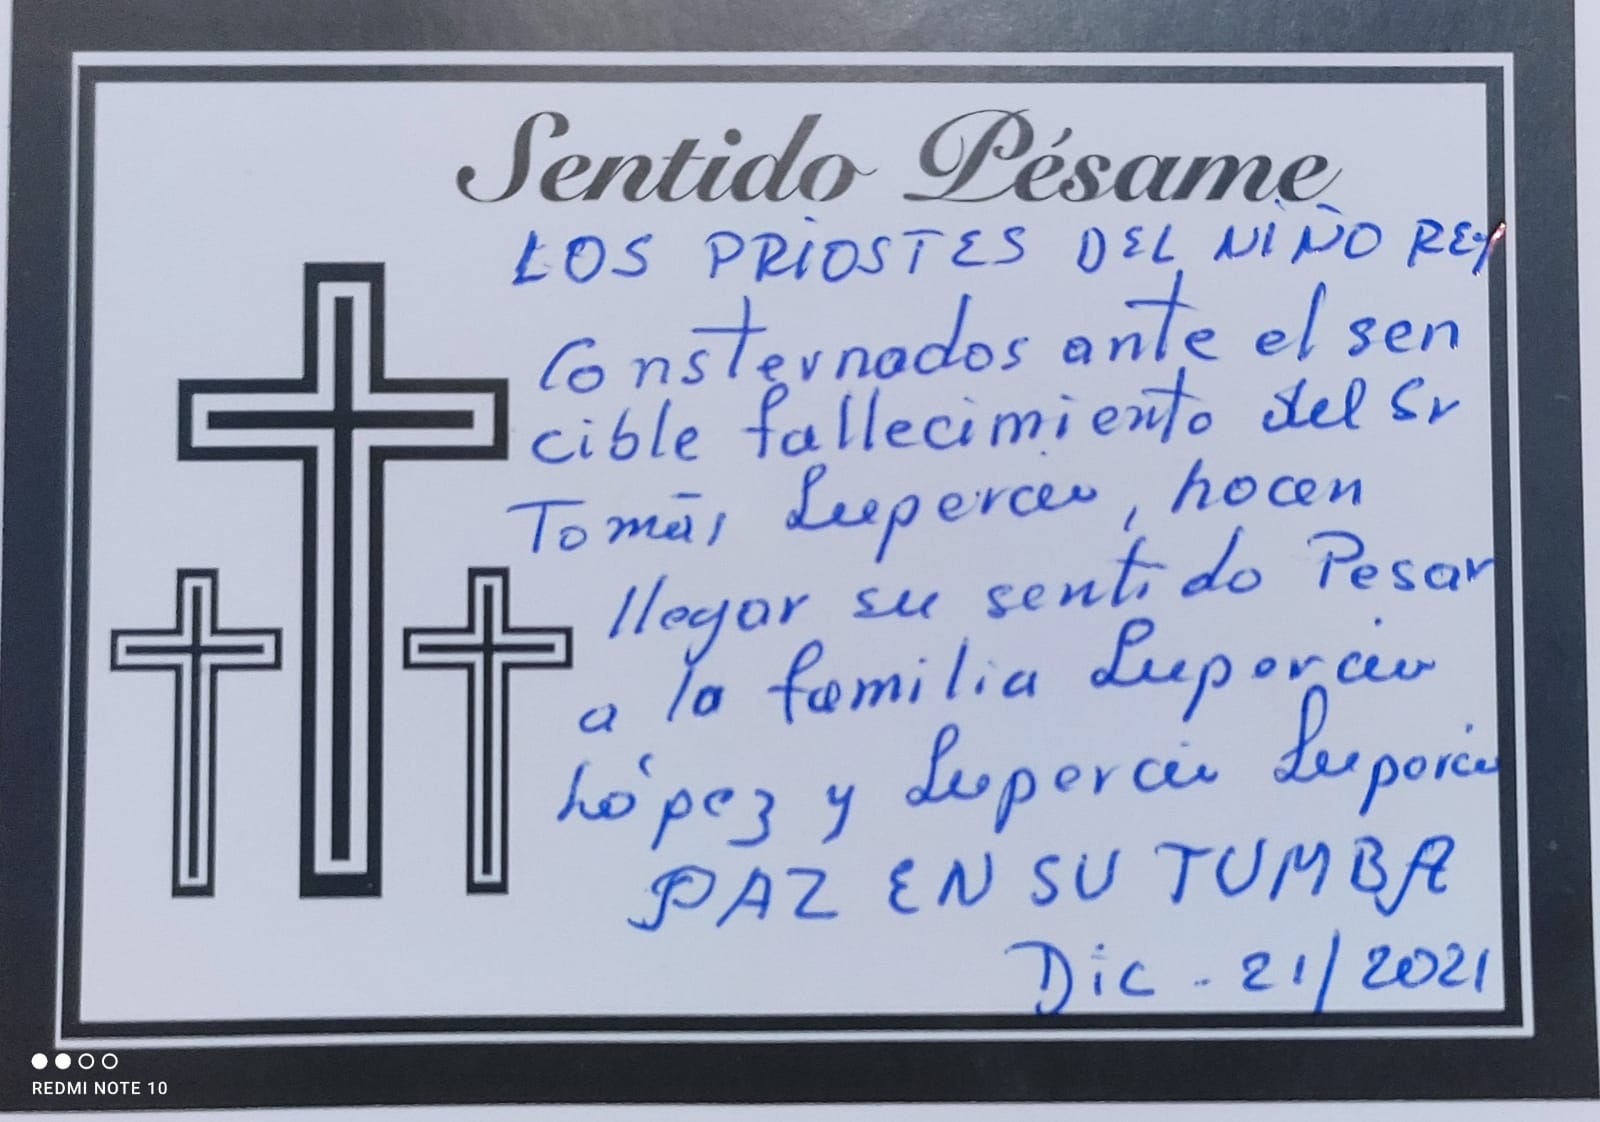 Sentido Pésame
LOS PRIOSTES DEL NIÑO REY
Consternados ante el sen
cible fallecimiento del Sr
Tomás Lupercio, hacen
llegar su sentido Pesar
a la familia Lupercio
López y Lupercio Lupercio
PAZ EN SU TUMBA
Dic - 21/2021
REDMI NOTE 10